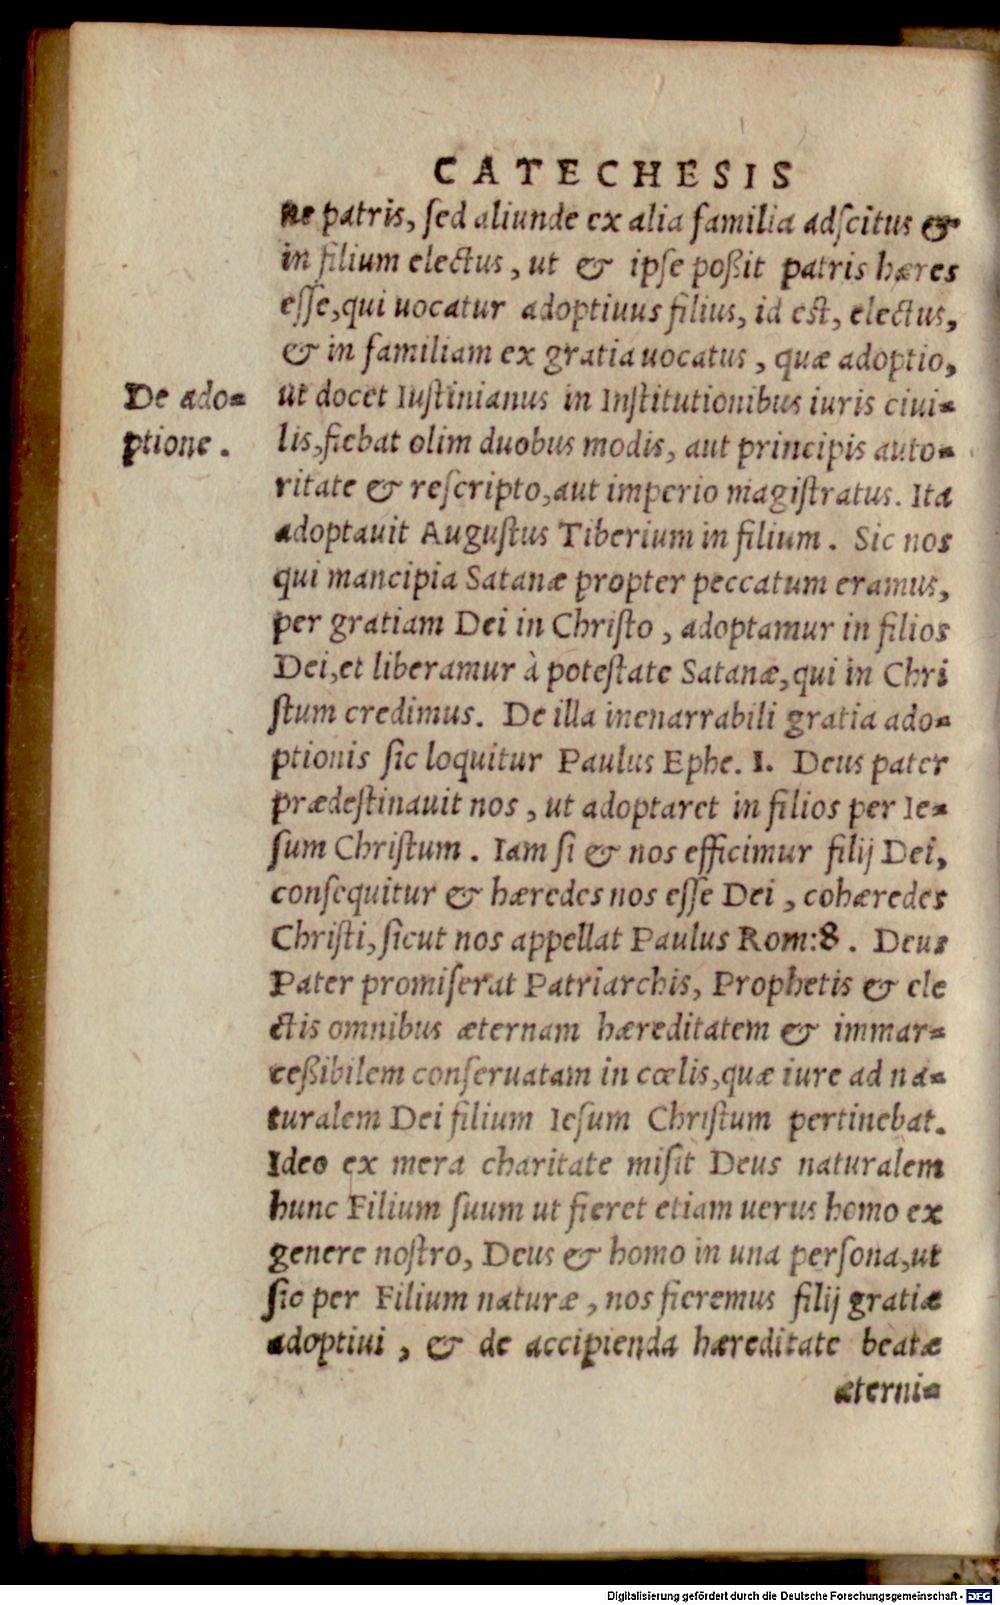 CATECHESIS
ne patris, ſed aliunde ex alia familia adſcitus &
in filium electus, ut & ipſe poßit patris hæres
eſſe, qui uocatur adoptiuus filius, id est, electus,
& in familiam ex gratia uocatus, quæ adoptio,
De ado=
ptione.
ut docet Iuſtinianus in Inſtitutionibus iuris ciui=
lis, fiebat olim duobus modis, aut principis auto=
ritate & reſcripto, aut imperio magiſtratus. Ita
adoptauit Auguſtus Tiberium in filium. Sic nos
qui mancipia Satanæ propter peccatum eramus,
per gratiam Dei in Chriſto, adoptamur in filios
Dei, et liberamur à poteſtate Satanæ, qui in Chri
ſtum credimus. De illa inenarrabili gratia ado=
ptionis ſic loquitur Paulus Ephe. I. Deus pater
prædeſtinauit nos, ut adoptaret in filios per Ie=
ſum Chriſtum. Iam ſi & nos efficimur filij Dei,
conſequitur & hæredes nos eſſe Dei, cohæredes
Chriſti, ſicut nos appellat Paulus Rom:8. Deus
Pater promiſerat Patriarchis, Prophetis & ele
ctis omnibus æternam hæreditatem & immar=
ceßibilem conſeruatam in cœlis, quæ iure ad na=
turalem Dei filium Ieſum Chriſtum pertinebat.
Ideo ex mera charitate miſit Deus naturalem
hunc Filium ſuum ut fieret etiam uerus homo ex
genere noſtro, Deus & homo in una perſona, ut
ſic per Filium naturæ, nos fieremus filij gratiæ
adoptiui, & de accipienda hæreditate beatæ
æterni=
Digitalisierung gefördert durch die Deutsche Forschungsgemeinschaft - DFG